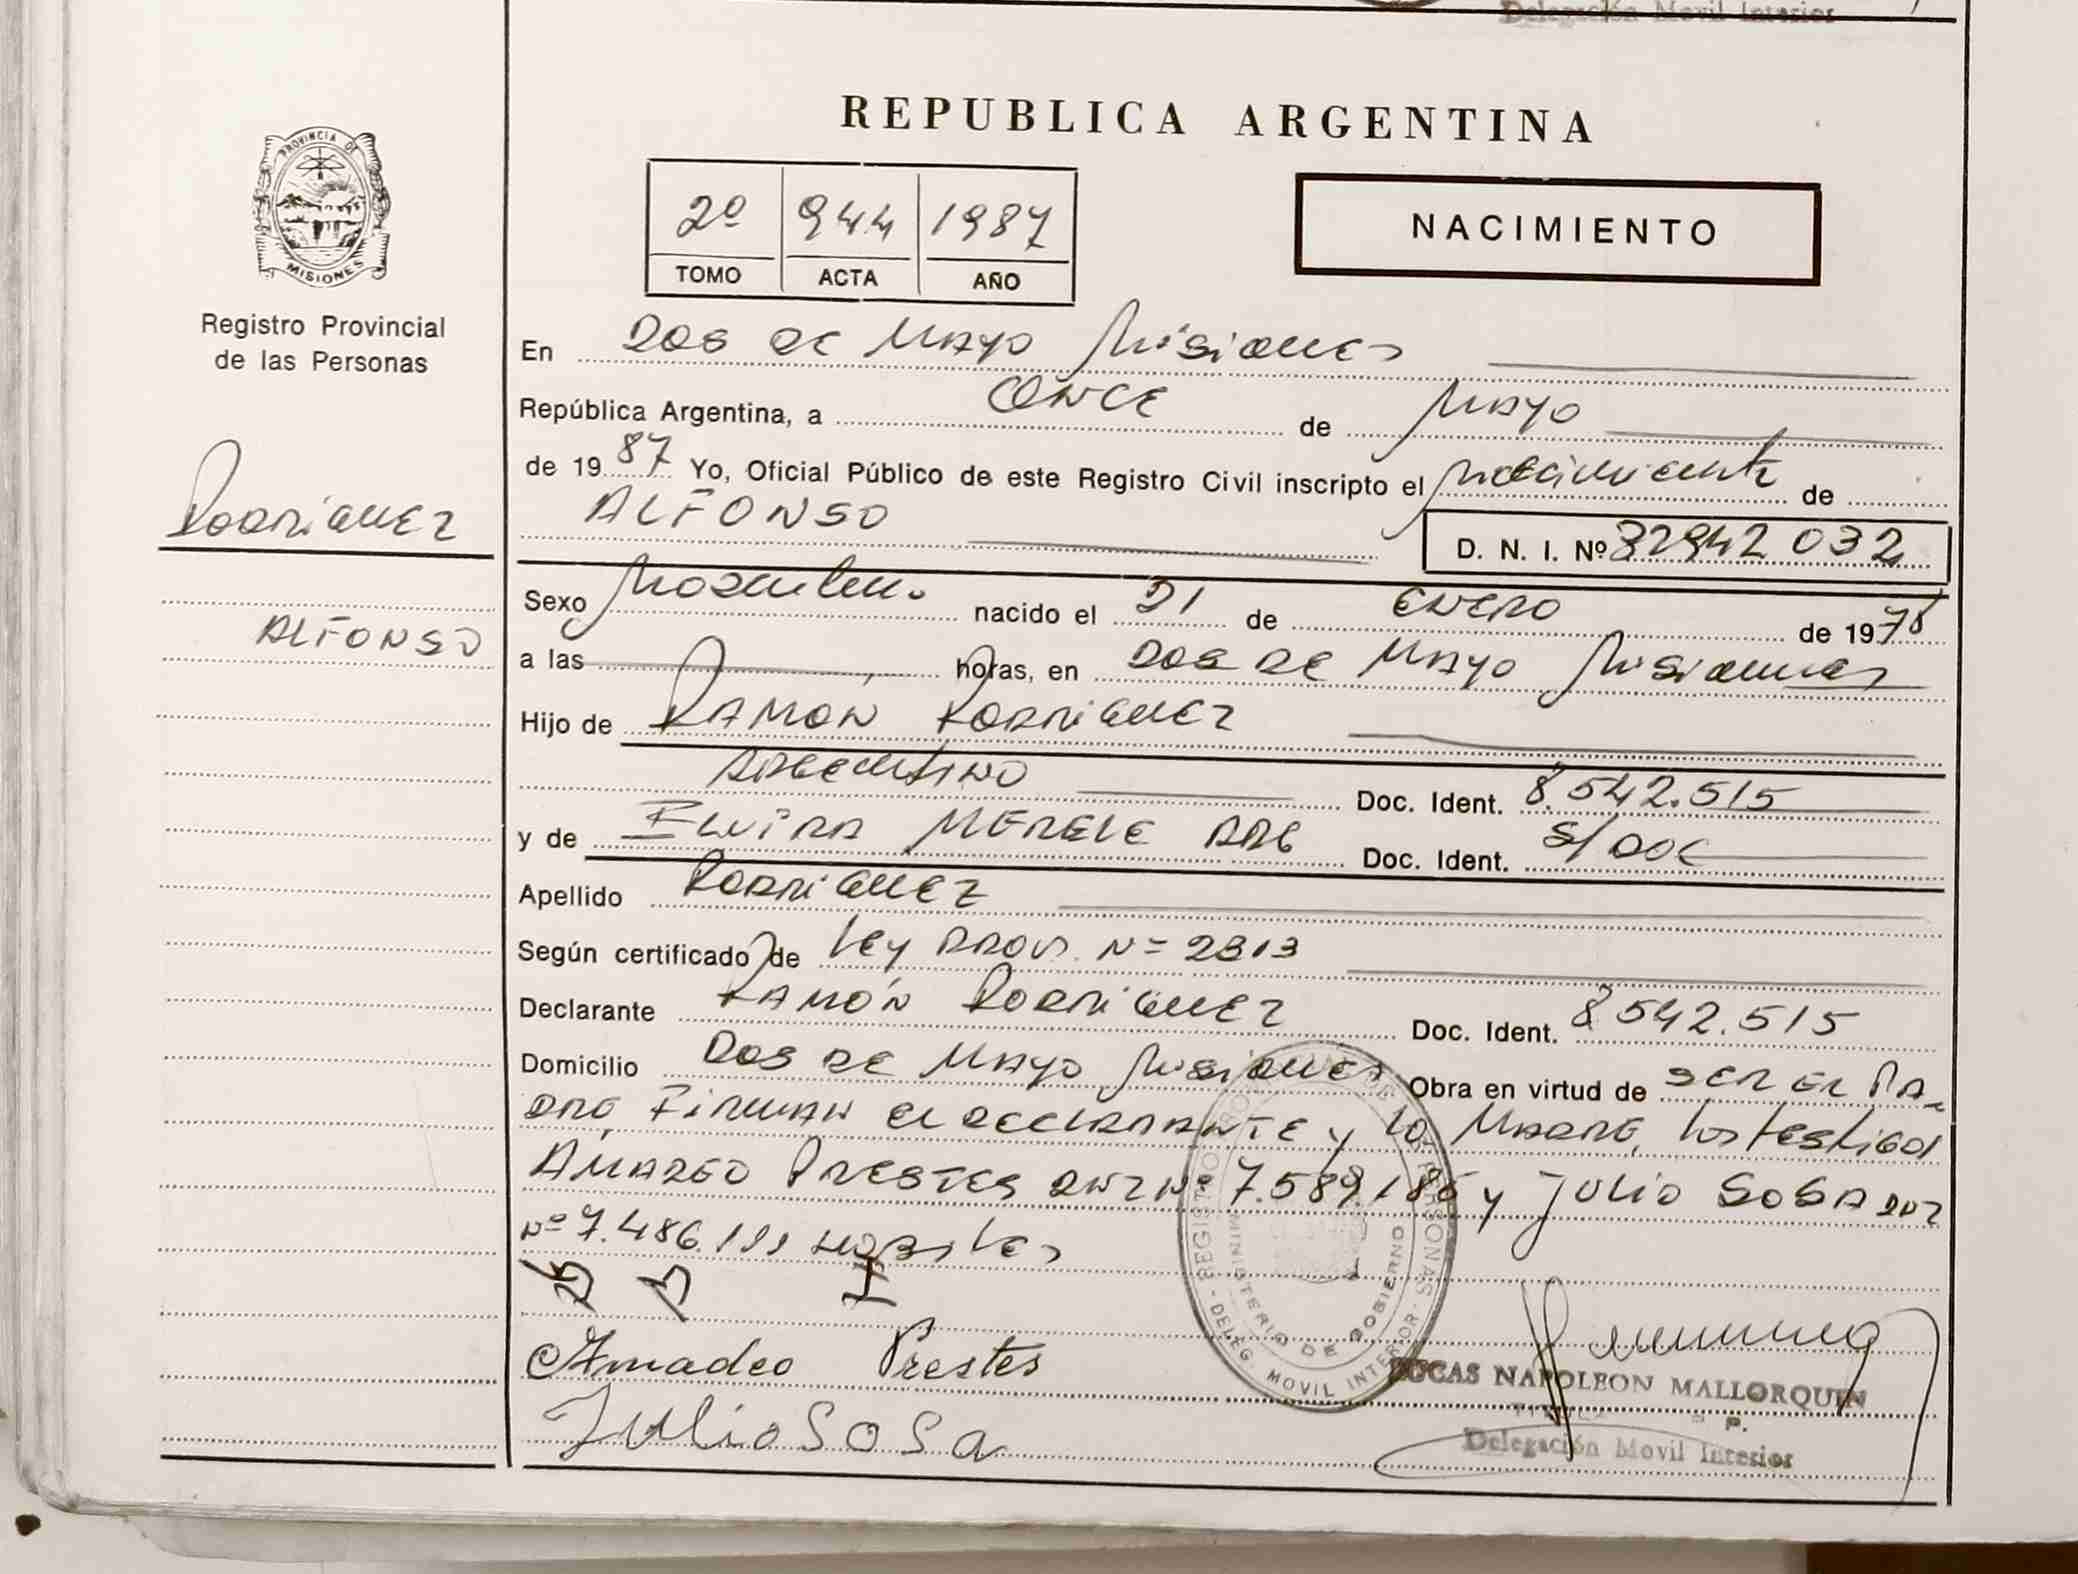 Delegación Movil Interior
REPUBLICA ARGENTINA
PROVINCIA DE
MISIONES
Registro Provincial
de las Personas
2º 944 1987
TOMO ACTA AÑO
NACIMIENTO
En DOS DE MAYO Misiones
República Argentina, a ONCE de MAYO
de 1987 Yo, Oficial Público de este Registro Civil inscripto el nacimiento de
ALFONSO
D. N. I. Nº 32942 032
RODRIGUEZ
ALFONSO
Sexo Masculino nacido el 21 de ENERO de 1978
a las horas, en DOS DE MAYO Misiones
Hijo de RAMON RODRIGUEZ
ARGENTINO Doc. Ident. 8.542.515
y de ELVIRA MERELE ARG Doc. Ident. S/DOC
Apellido RODRIGUEZ
Según certificado de Ley PROV. Nº 2313
Declarante RAMÓN RODRIGUEZ Doc. Ident. 8.542.515
Domicilio DOS DE MAYO Misiones Obra en virtud de SER EL PA-
DRE, FIRMAN el DECLARANTE y la MADRE, los testigos
AMADEO PRESTES DNI Nº 7.589.186 y JULIO SOSA DNI
Nº 7.486.191 HABILES
Amadeo Prestes
Julio SOSA
REGISTRO PROVINCIAL DE LAS PERSONAS
DELEG. MOVIL INTERIOR
MINISTERIO DE GOBIERNO
LUCAS NAPOLEON MALLORQUIN
Delegación Movil Interior